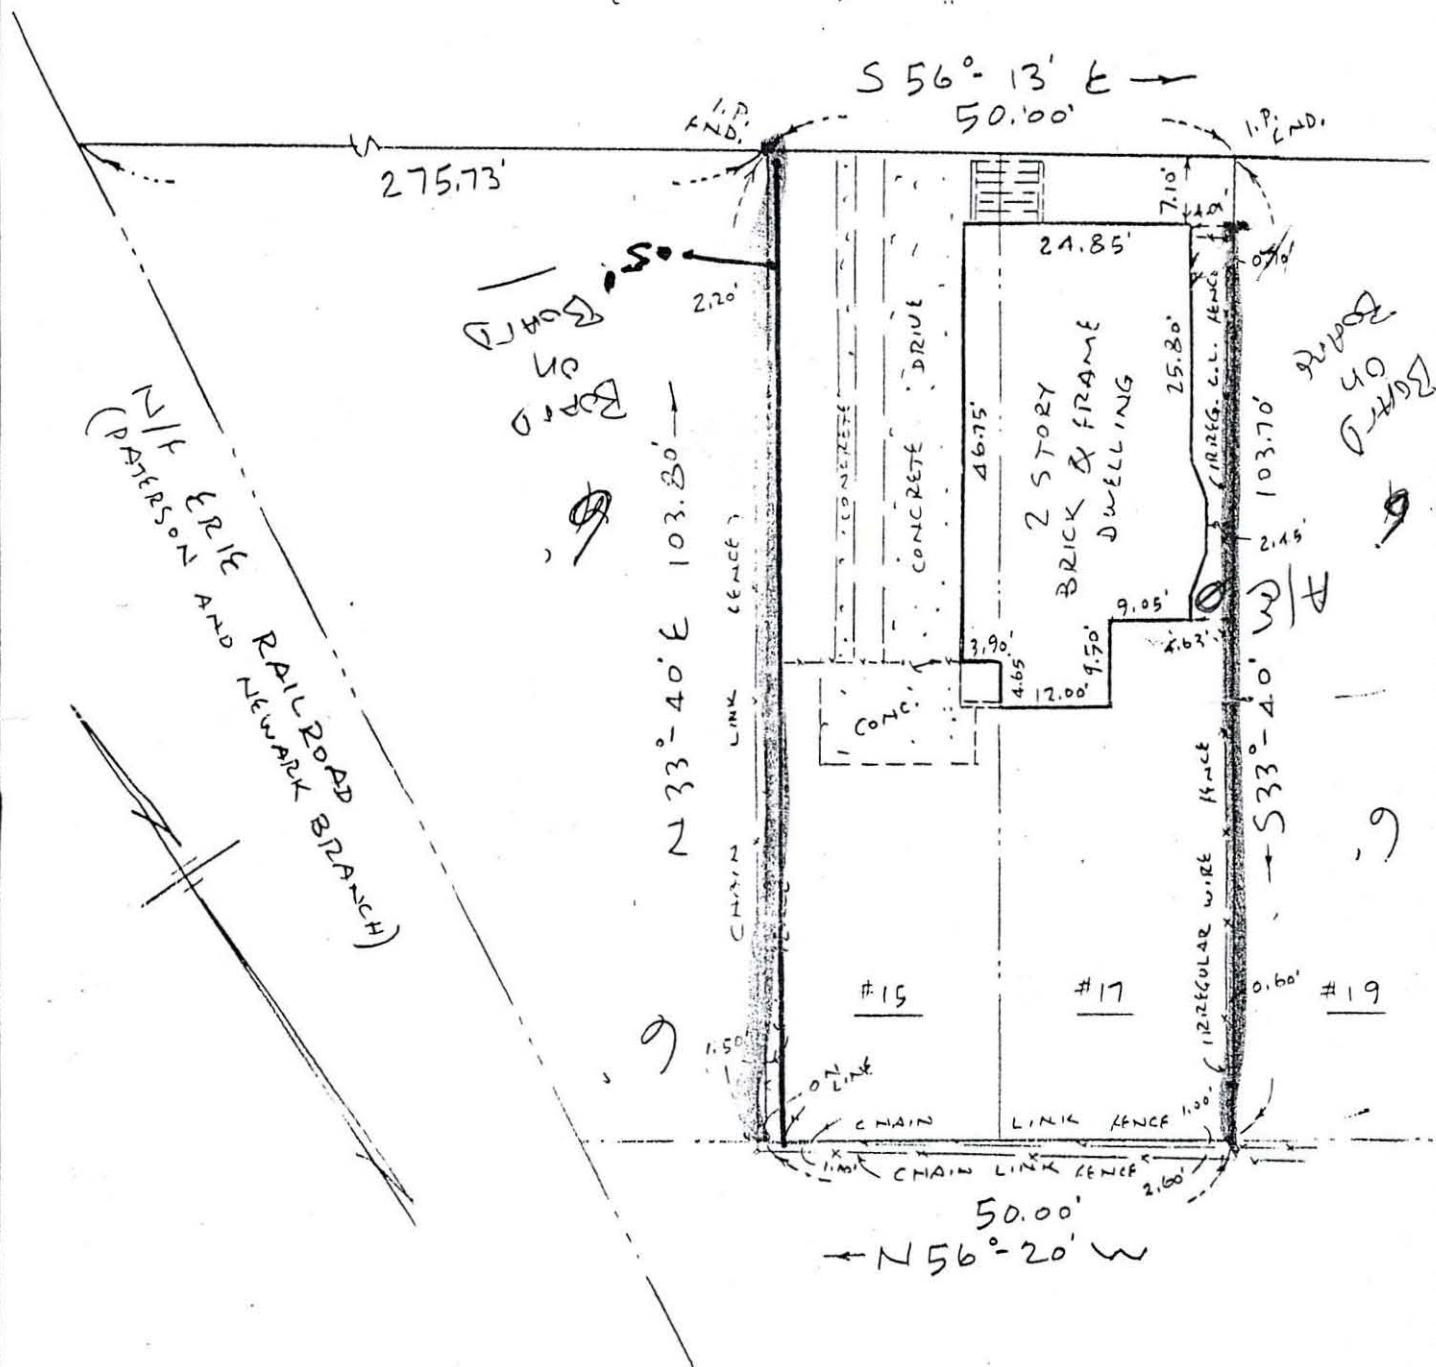 S 56°- 13' E →
50.00'
I.P.
FND.
I.P.
FND.
275.73'
7.10'
24.85'
.5'
2.20'
BOARD
ON
BOARD
6'
BOARD
ON
BOARD
6'
N/F ERIE RAILROAD
(PATERSON AND NEWARK BRANCH)
N 33°- 40' E 103.80' →
CHAIN LINK FENCE)
CONCRETE
CONCRETE DRIVE
46.75'
2 STORY
BRICK & FRAME
DWELLING
25.80'
(IRREG. C.L. FENCE
103.70'
2.45'
A/C
← S33°- 40' W
9.05'
4.63'
3.90'
4.65
9.50'
12.00'
CONC.
(IRREGULAR WIRE FENCE
6'
6'
#15
#17
0.60'
#19
1.50'
ON
LINE
CHAIN LINK FENCE
1.00'
CHAIN LINK FENCE
2.60'
50.00'
← N 56°- 20' W